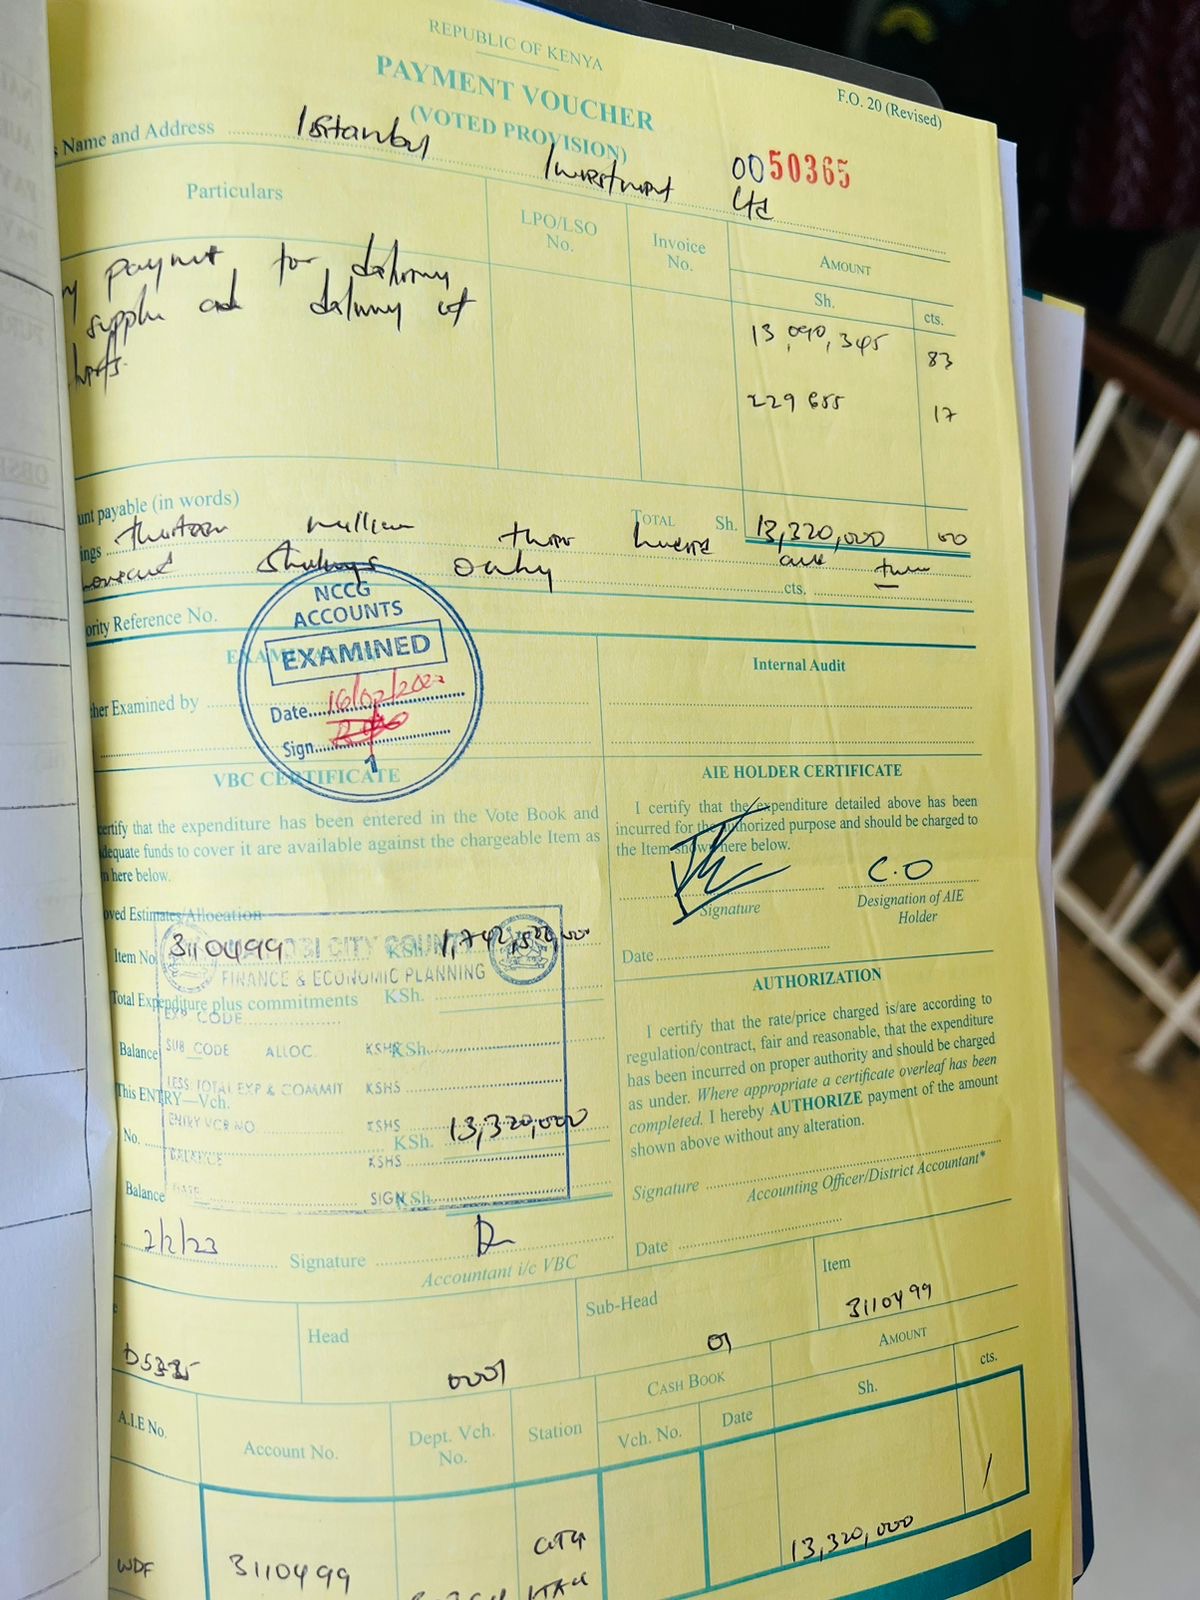 REPUBLIC OF KENYA
PAYMENT VOUCHER
F.O. 20 (Revised)
(VOTED PROVISION)
Name and Address Istanbul Investment Ltd
0050365
Particulars
LPO/LSO No.
Invoice No.
AMOUNT
Sh. cts.
payment for
supply and delivery of
13,090,345 83
229 655 17
unt payable (in words)
TOTAL Sh. 13,320,000 00
ings thirteen million three hundred and twenty
Shillings only cts.
ority Reference No.
NCCG
ACCOUNTS
EXAMINED
Date 16/02/202
Sign
1
Internal Audit
her Examined by
VBC CERTIFICATE
AIE HOLDER CERTIFICATE
ertify that the expenditure has been entered in the Vote Book and
dequate funds to cover it are available against the chargeable Item as
n here below.
I certify that the expenditure detailed above has been
incurred for the authorized purpose and should be charged to
the Item shown here below.
C.O
Signature
Designation of AIE Holder
Date
oved Estimates/Allocation
Item No 3110499 KSh.
CITY COUNTY
FINANCE & ECONOMIC PLANNING
Total Expenditure plus commitments KSh.
EXP CODE
Balance KSh.
SUB CODE ALLOC. KSHS
LESS TOTAL EXP & COMMIT KSHS
This ENTRY—Vch.
ENTRY VCR NO KSHS
No. KSh. 13,320,000
BALANCE KSHS
Balance KSh.
DATE SIGN
2/2/23 Signature
Accountant i/c VBC
AUTHORIZATION
I certify that the rate/price charged is/are according to
regulation/contract, fair and reasonable, that the expenditure
has been incurred on proper authority and should be charged
as under. Where appropriate a certificate overleaf has been
completed. I hereby AUTHORIZE payment of the amount
shown above without any alteration.
Signature
Accounting Officer/District Accountant*
Date
Head
0001
Sub-Head
01
Item
3110499
A.I.E No.
Account No.
Dept. Vch. No.
Station
CASH BOOK
Vch. No.
Date
AMOUNT
Sh. cts.
WDF
3110499
CITY
13,320,000